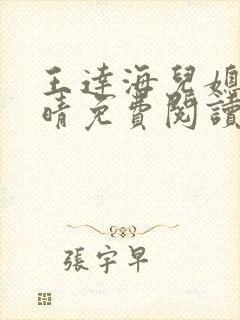 王達海兒媳
晴免費閱讀
張宇早